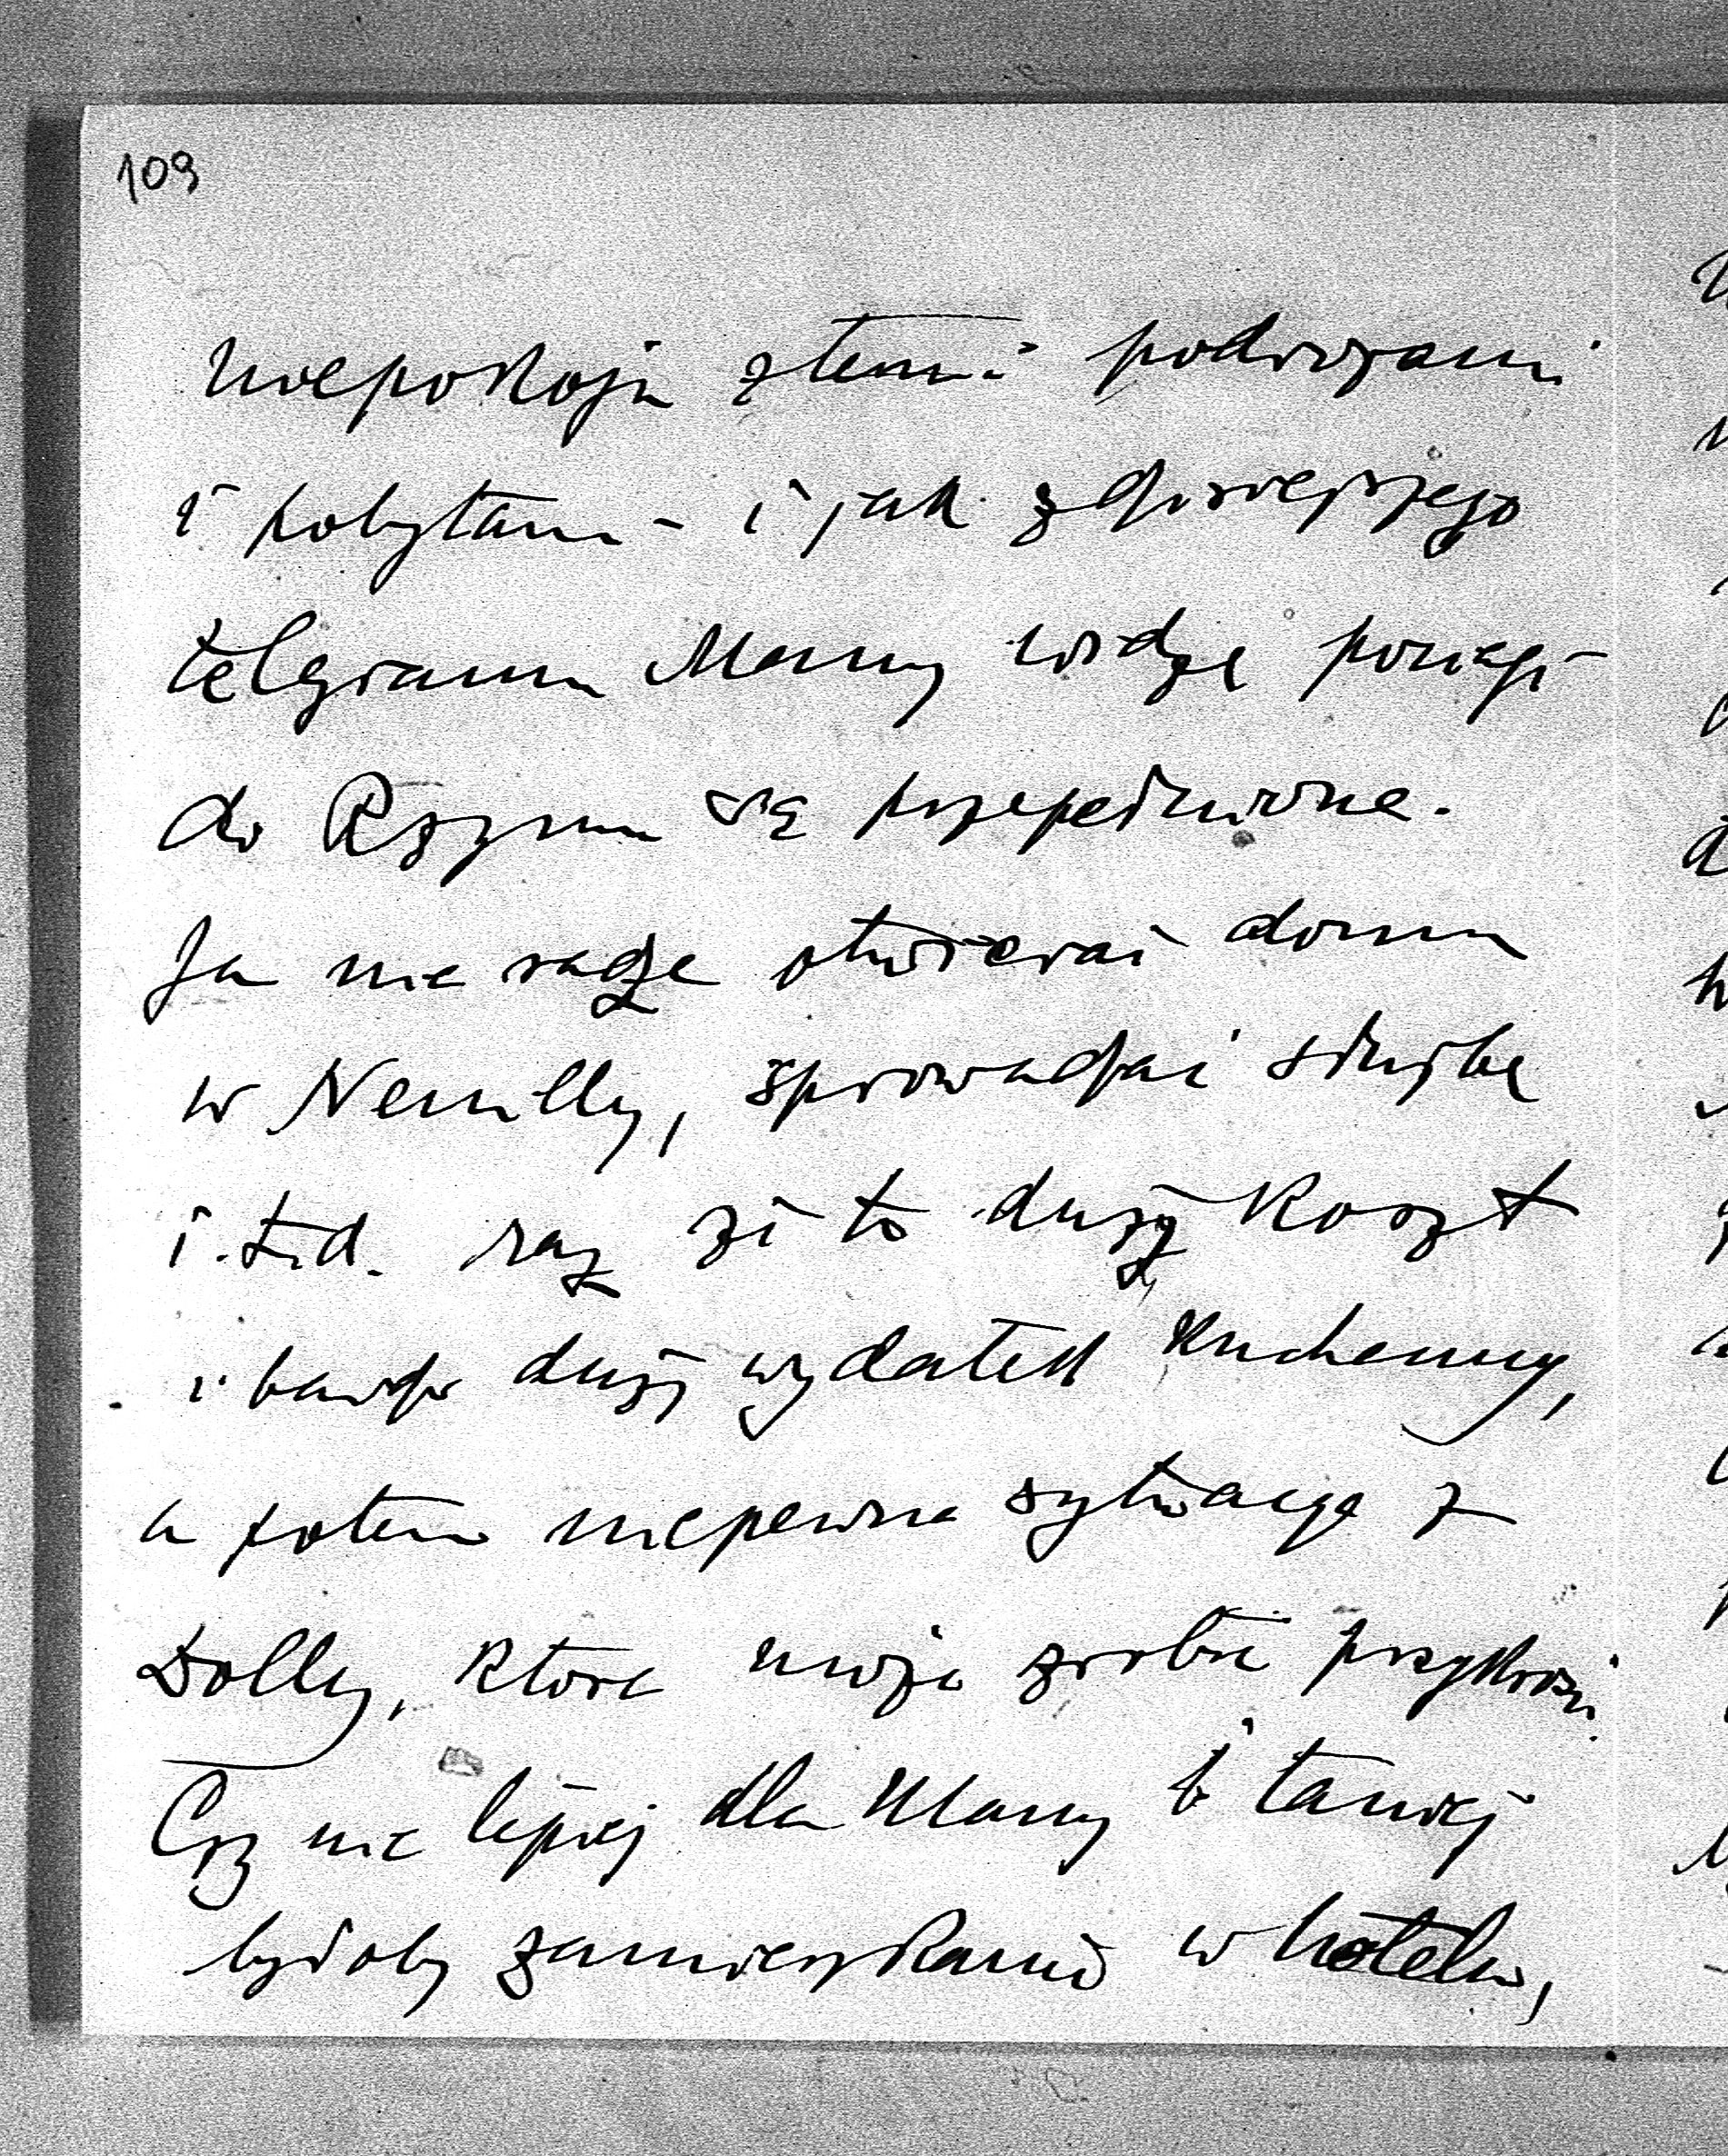 109
niepokoju z temi podróżami
i pobytami – i jak z dzisiejszego
telegramu Mamy widzę pociągi
do Rzymu są przepełnione.
Ja nie radzę otwierać domu
w Neuilly, sprowadzać służbę
i.t.d. raz że to duży koszt
i bardzo duży wydatek kuchenny,
a potem niepewna sytuacja z
Dolly, która może zrobić przykrości.
Czy nie lepiej dla Mamy i taniej
byłoby zamieszkanie w hotelu,